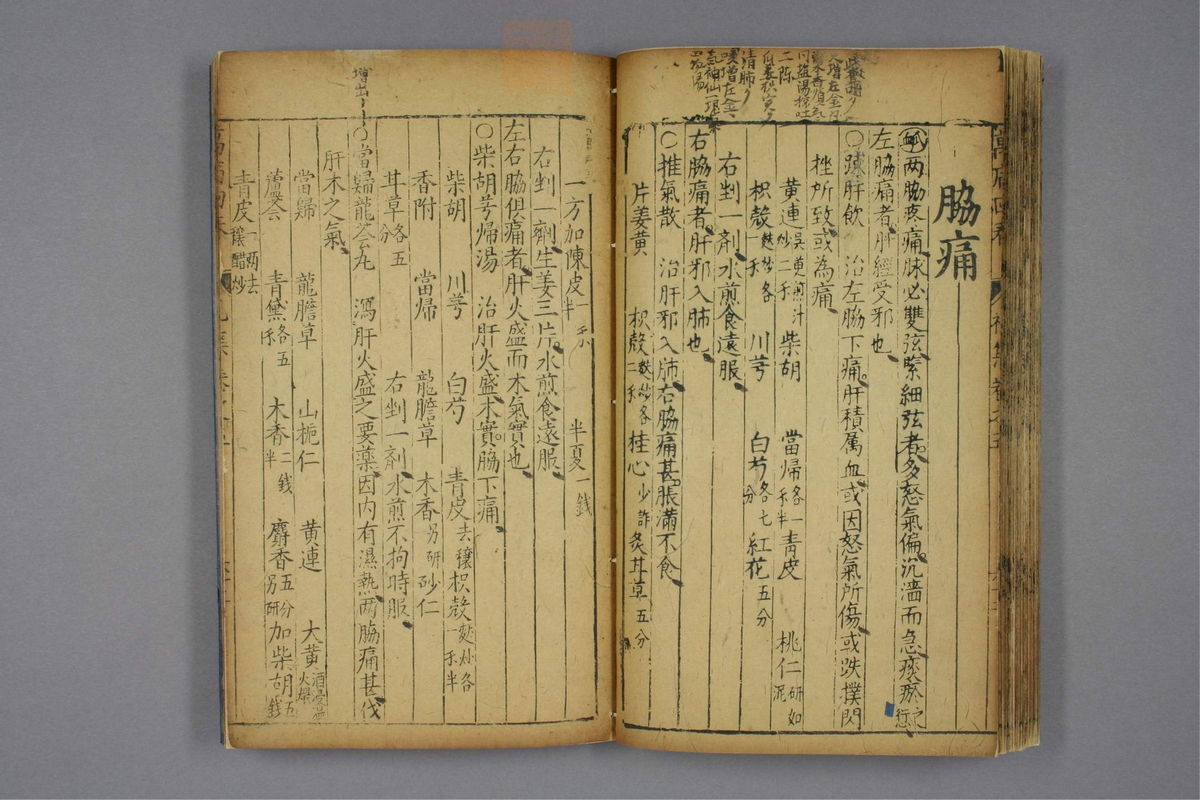 脇痛
脉两脇疼痛脉必雙弦緊細弦者多怒氣偏沉濇而急痰瘀之行
左脇痛者肝經受邪也
○疎肝飲 治左脇下痛肝積属血或因怒氣所傷或跌撲閃
挫所致或為痛
黄連吳茱萸煎汁炒二禾 柴胡 當帰各一禾半 青皮 桃仁研如泥
枳殼麩炒各一禾 川芎 白芍各七分 紅花五分
右剉一剤水煎食遠服
右脇痛者肝邪入肺也
○推氣散 治肝邪入肺右脇痛甚脹滿不食
片姜黄 枳殼麩炒各二禾 桂心少許 炙甘草五分
一方加陳皮一禾半 半夏一錢
右剉一劑生姜三片水煎食遠服
左右脇俱痛者肝火盛而木氣實也
○柴胡芎帰湯 治肝火盛木實脇下痛
柴胡 川芎 白芍 青皮去穰 枳殼麩炒各一禾半
香附 當帰 龍膽草 木香另研 砂仁
甘草各五分 右剉一剤水煎不拘時服
增出
○當歸龍薈丸 瀉肝火盛之要藥因内有濕熱两脇痛甚伐
肝木之氣
當歸 龍膽草 山梔仁 黄連 大黄酒浸火煨
蘆薈 青黛各五禾 木香二錢半 麝香五分另研 加柴胡五錢
青皮一两去穰醋炒